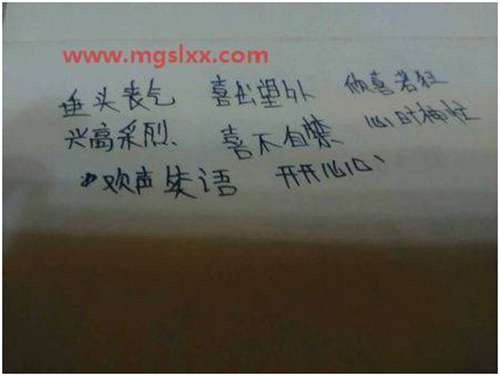 www.mgslxx.com
垂头丧气 喜出望外 欣喜若狂
兴高采烈、 喜不自禁 心旷神怡
欢声笑语 开开心心、